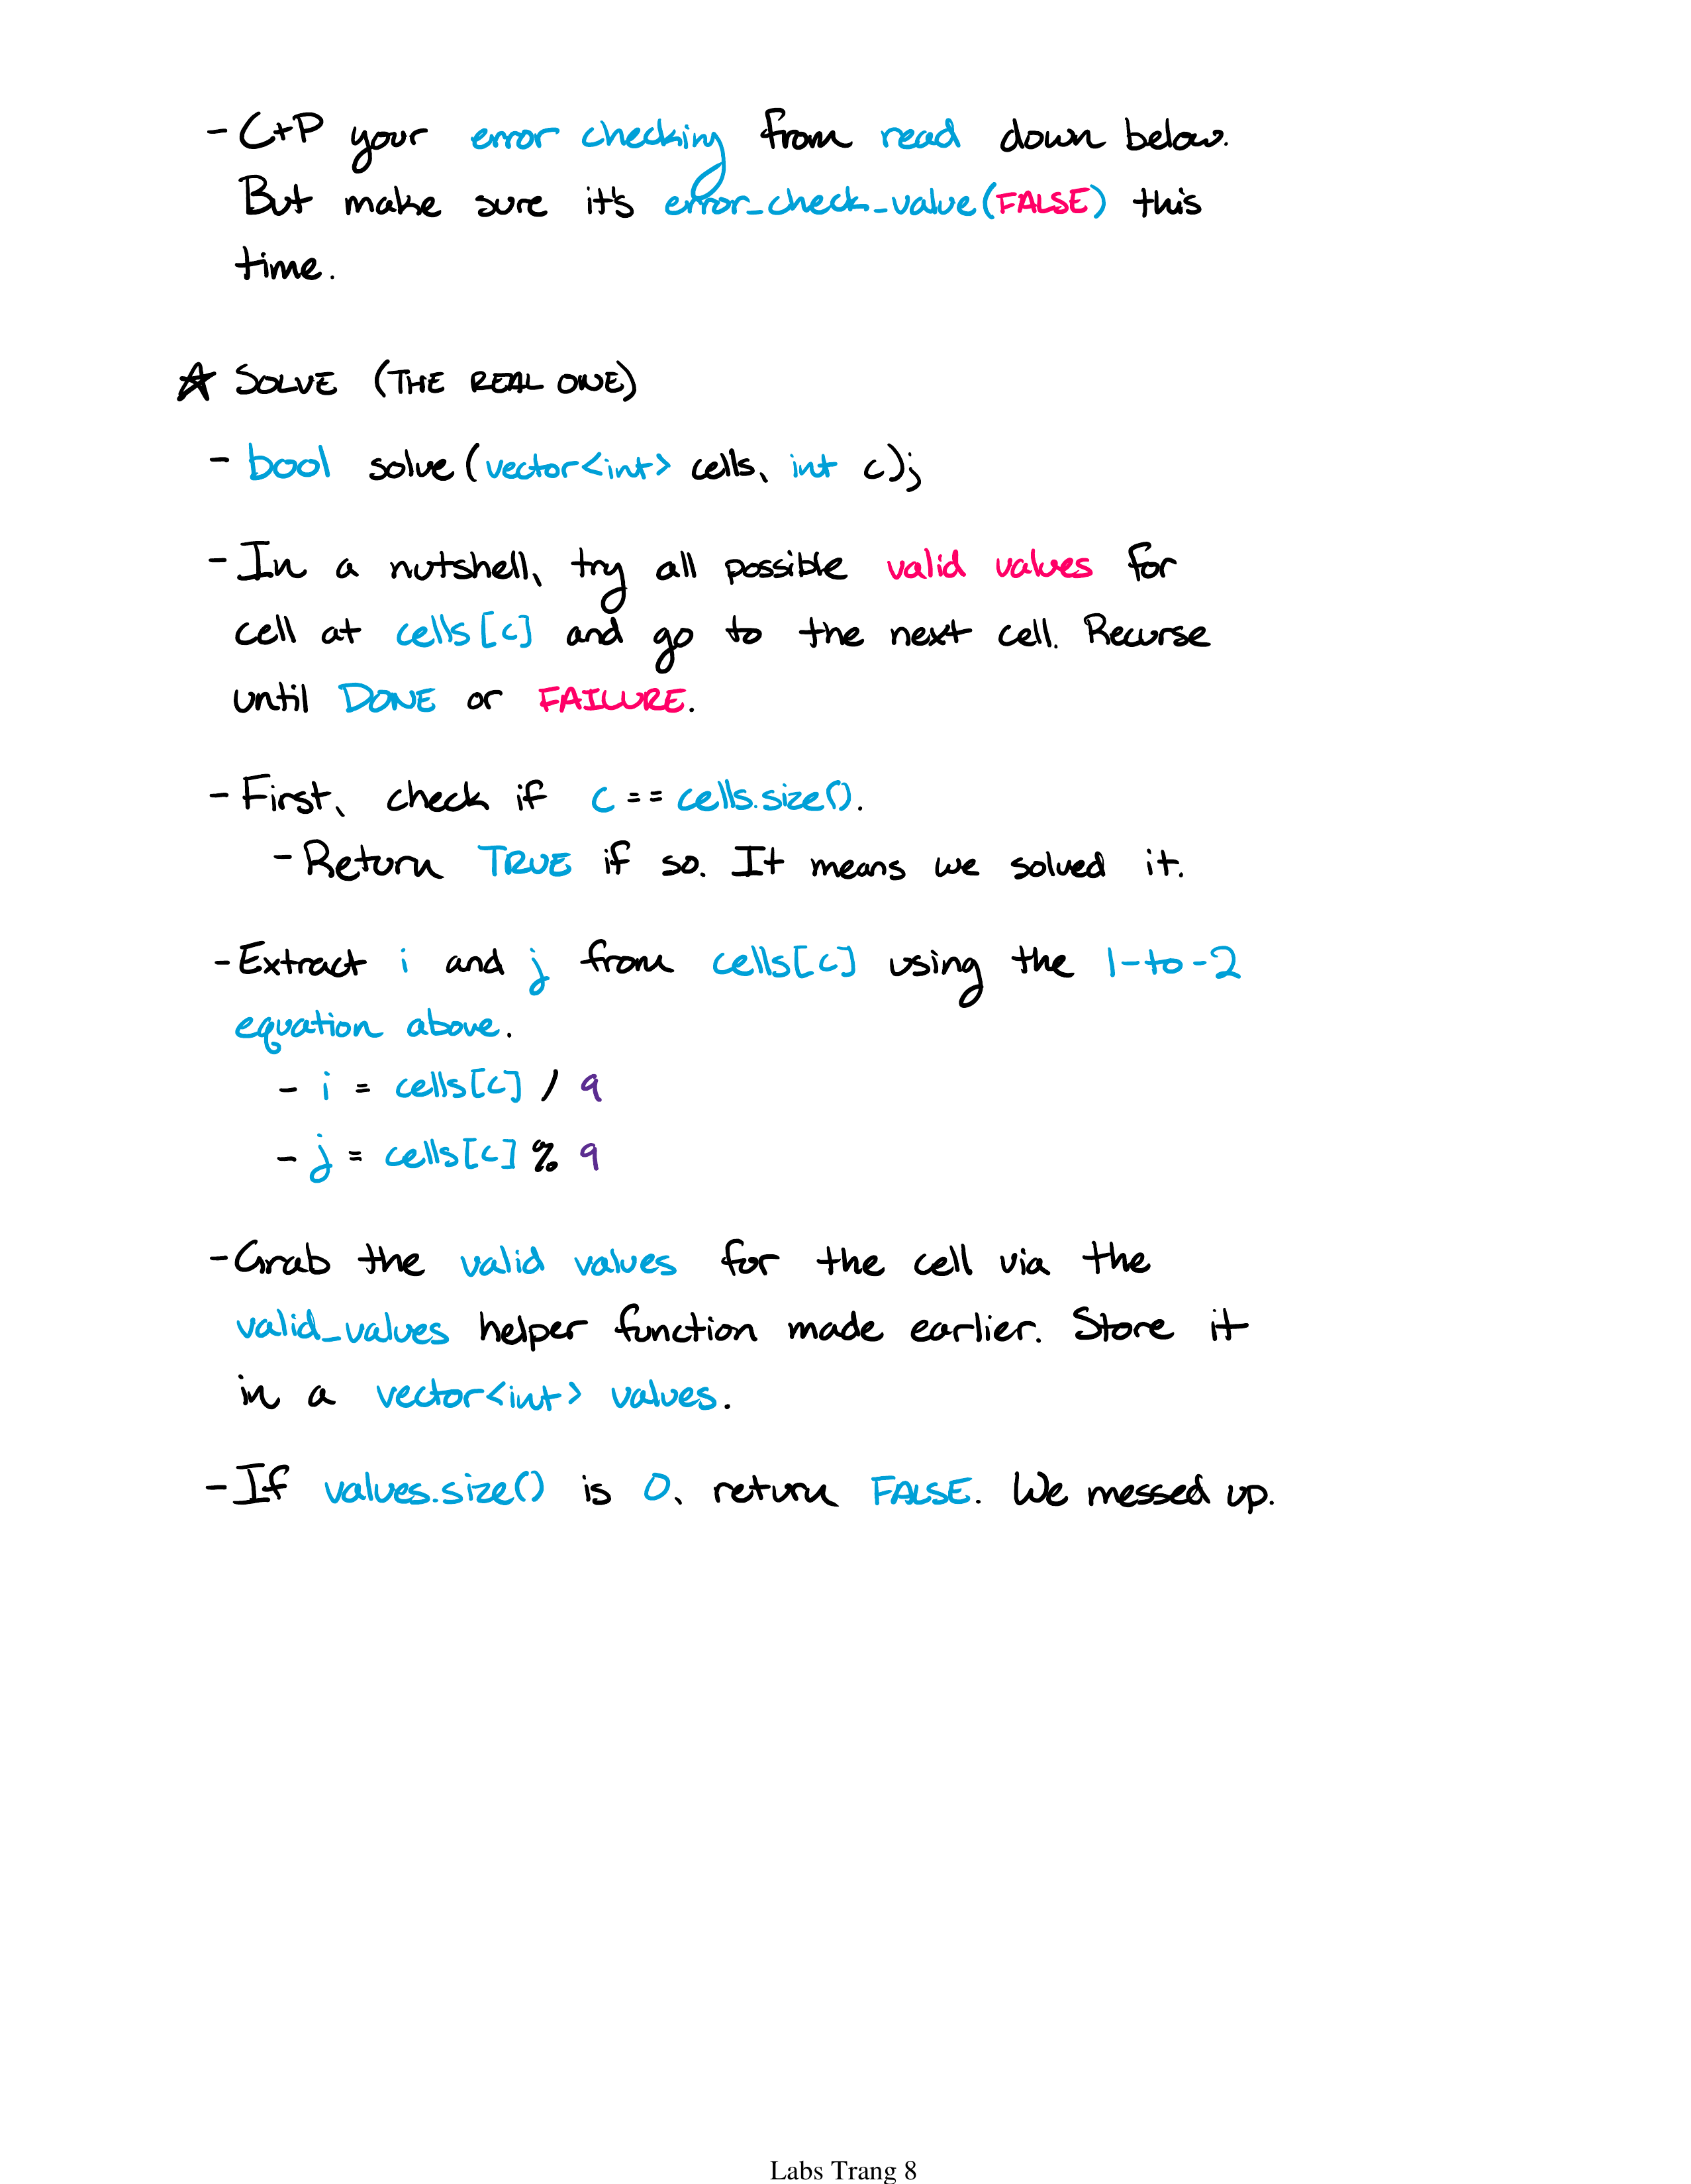 - C+P your error checking from read down below.
But make sure it's error_check_value(FALSE) this
time.
★ SOLVE (THE REAL ONE)
- bool solve(vector<int> cells, int c);
- In a nutshell, try all possible valid values for
cell at cells[c] and go to the next cell. Recurse
until DONE or FAILURE.
- First, check if c == cells.size().
- Return TRUE if so. It means we solved it.
- Extract i and j from cells[c] using the 1-to-2
equation above.
- i = cells[c] / 9
- j = cells[c] % 9
- Grab the valid values for the cell via the
valid_values helper function made earlier. Store it
in a vector<int> values.
- If values.size() is 0, return FALSE. We messed up.
Labs Trang 8